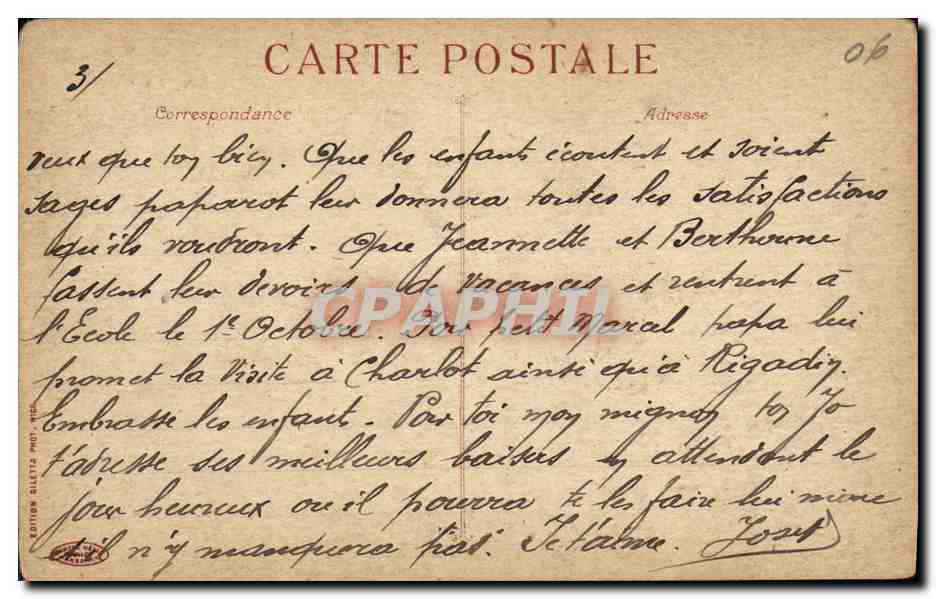 CARTE POSTALE
06
3/
Correspondance
Adresse
veux que ton bien. Que les enfants écoutent et soient
sages paparot leur donnera toutes les satisfactions
qu'ils voudront. Que Jeannette et Berthoune
fassent leur devoirs de vacances et rentrent à
l'Ecole le 1e Octobre. Pour petit Marcel papa lui
promet la visite à Charlot ainsi qu'à Rigadin.
Embrasse les enfants. Pour toi mon mignon ton Jo
t'adresse ses meilleurs baisers en attendant le
jour heureux ou il pourra te les faire lui même
et il n'y manquera pas. Je t'aime. Josep
EDITION GILETTA PHOT. NICE
CPAPHIL